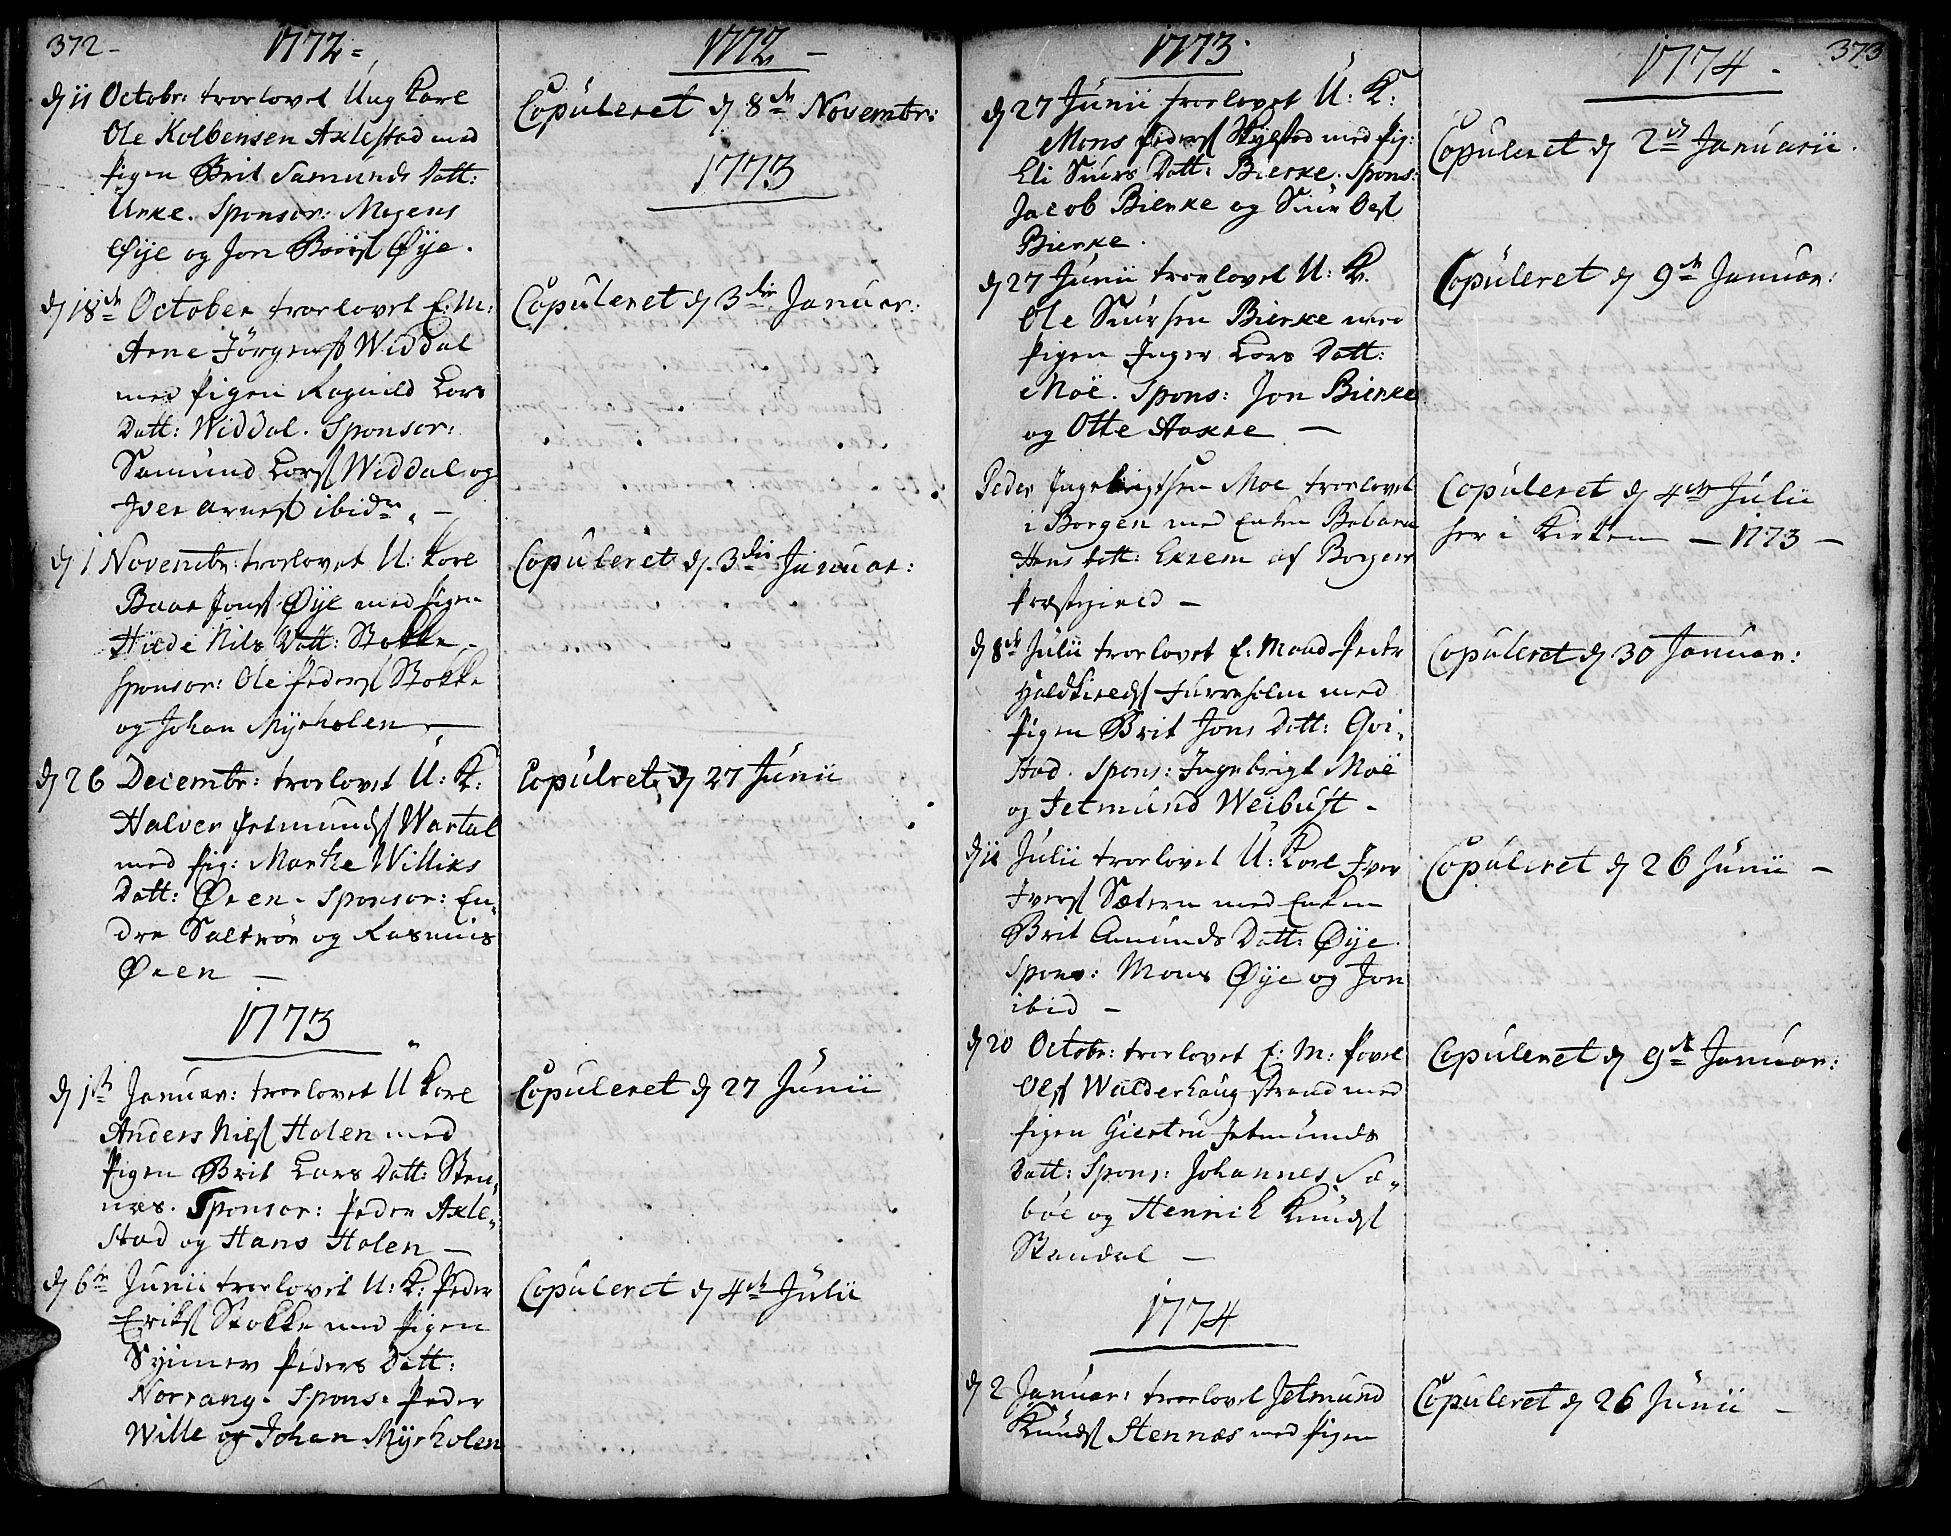 372-
1772-
d 11 Octobr: trorlovet Ung Karl
Ole Kolbensen Axlestad med
Pigen Brit Samunds Datt:
Urke. Sponsor: Mogens
Øije og Jon Baars Øye.
d 18de October trorlovet E: M:
Arne Jørgens Widdal
med Pigen Ragnild Lars
Datt: Widdal. Sponsor:
Samund Lars Widdal og
Iver Arnes ibidm -
d 1 Novembr: trorlovet U: Karl
Baar Jons Øye med Pigen
Hilde Nils Datt: Stokke -
Sponsor: Ole Peders Stokke
og Johan Myrholen -
d 26 Decembr: trorlovet U: K:
Halver Petmunds Wartal
med Pig: Marthe Williks
Datt: Øren - Sponsor: En-
dre Saltrøe og Rasmus
Øren -
1773
d 1ste Januar: trorlovet U Karl
Anders Niels Holen med
Pigen Brit Lars Datt: Sten-
næs. Sponsor: Peder Axle-
stad og Hans Holen -
d 6te Junii trorlovet U: K: Peder
Eriks Stokke med Pigen
Peders Datt:
Norrang. Spons: Peder
Wille og Johan Myrholen
1772 -
Copuleret d 8de Novembr:
1773
Copuleret d 3die Januar:
Copuleret d. 3die Januar:
Copulret d 27 Junii
Copuleret d 27 Junii
Copuleret d 4de Julii
1773
d 27 Junii trorlovet U: K:
Mons Peders Skylstad med Pig:
Eli Siurs Datt: Bierke. Spons:
Jacob Bierke og Siur Oles
Bierke.
d 27 Junii trorlovet U: K.
Ole Siursen Bierke med
Pigen Inger Lars Datt:
Moe. Spons: Jon Bierke
og Otte Aakre -
Peder Ingebrigtsen Moe trorlovet
i Borgen med Enken Babara
Hans Datt: Exrem af Borgen
Præstegield -
d 8de Julii trorlovet E: Mand Peder
Furreholm med
Pigen Brit Jons Datt: Qvi-
stad. Spons: Ingebrigt Moe
og Jetmund Weibust -
d 11 Julii trorlovet U: Karl Iver
Ivers Sætern med Enken
Brit Amunds Datt: Øye.
Spons: Mons Øye og Jon
ibid -
d 20 Octobr: trorlovet E: M: Povel
Ols Walderhaug strand med
Pigen Giertru Jetmunds
Datt: Spons: Johannes Sæ-
bøe og Henrich Knuds
Standal -
1774
d 2 Januar: trorlovet Jetmund
Knuds Stennæs med Pigen
373
1774 -
Copuleret d 2den Januarii.
Copuleret d 9de Januar:
Copuleret d 4de Julii
her i Kirken - 1773 -
Copuleret d 30 Januar:
Copuleret d 26 Junii -
Copuleret d 9de Januar:
Copuleret d 26 Junii -